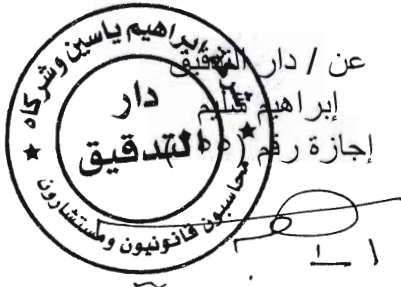 عن / دار التدقيق
إبراهيم سليم
إجازة رقم
إبراهيم ياسين وشركاه
دار
التدقيق
محاسبون قانونيون ومستشارون